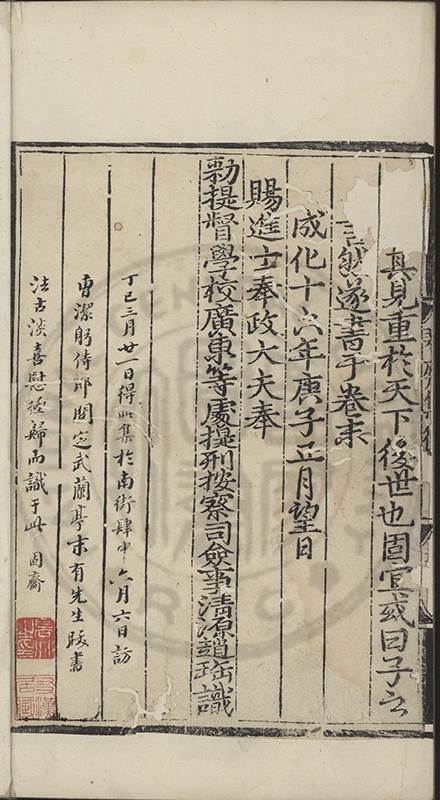 其見重於天下後世也固宜或曰子之
言然遂書于卷末
成化十六年庚子正月望日
賜進士奉政大夫奉
勑提督學校廣東等處提刑按察司僉事清源趙瑤識
丁巳三月廿一日得此集於南街肆中六月六日訪
曹潔躬侍郎閱定武蘭亭末有先生跋書
法古淡喜慰極歸而識于此 固齋